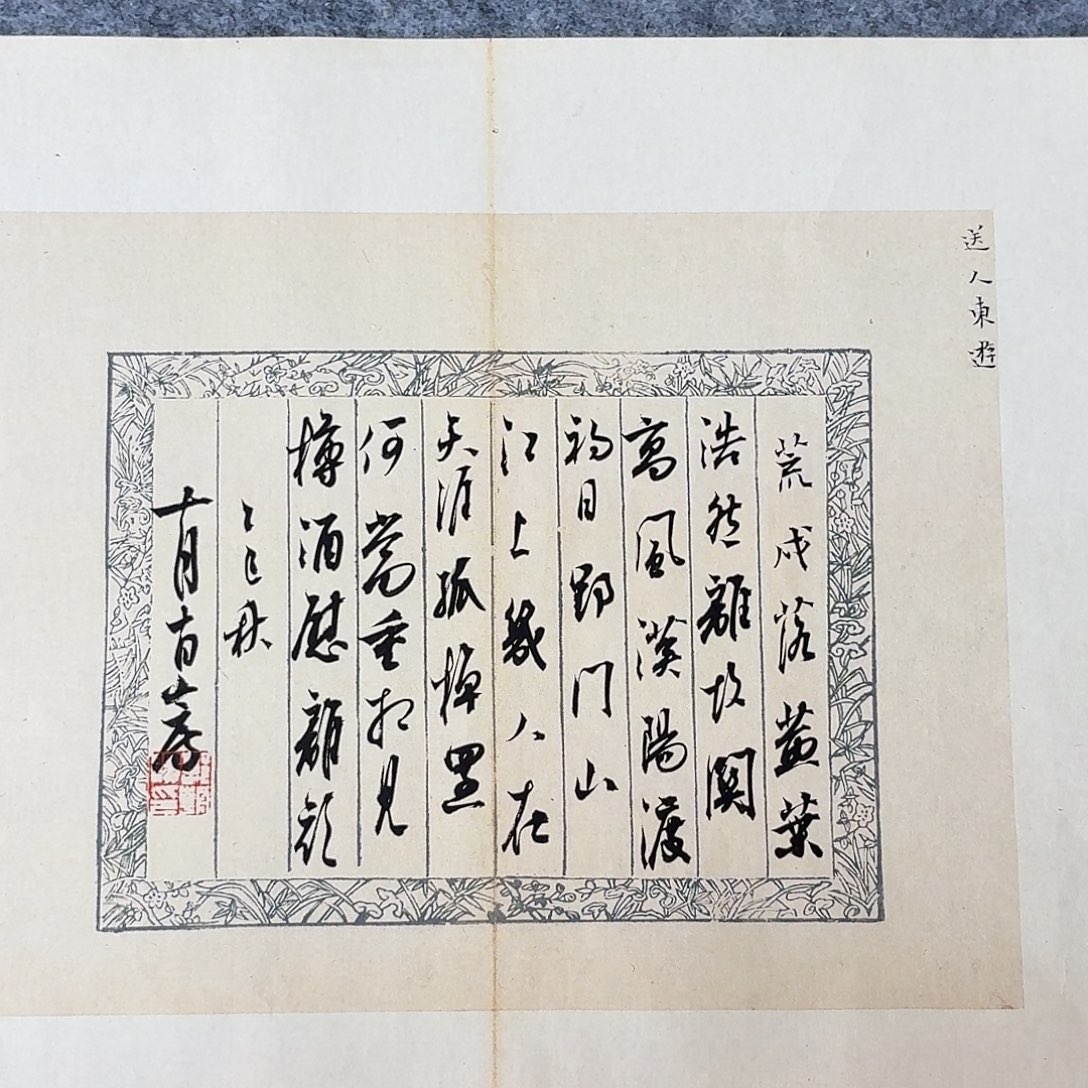 送人東遊
荒戍落黃葉
浩然離故關
高風漢陽渡
初日郢门山
江上幾人在
天涯孤棹還
何當重相見
樽酒慰離顏
乙巳秋
十月